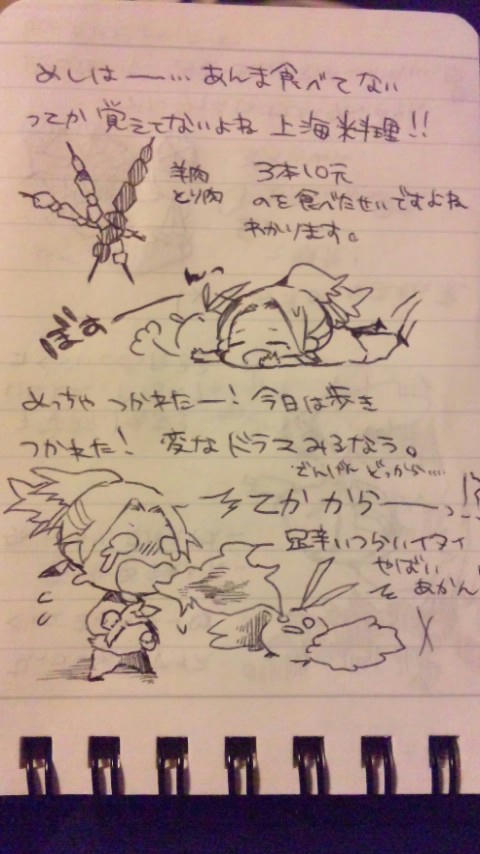 めしはー…あんま食べてない
ってか覚えてないよね 上海料理!!
羊肉 3本10元
とり肉 のを食べたせいですよね
わかります。
ぼすーんっ
めっちゃつかれたー!今日は歩き
つかれた! 変なドラマみるなう。
てかからーっ!?
辛いつらいイタイ
やばい
あかん